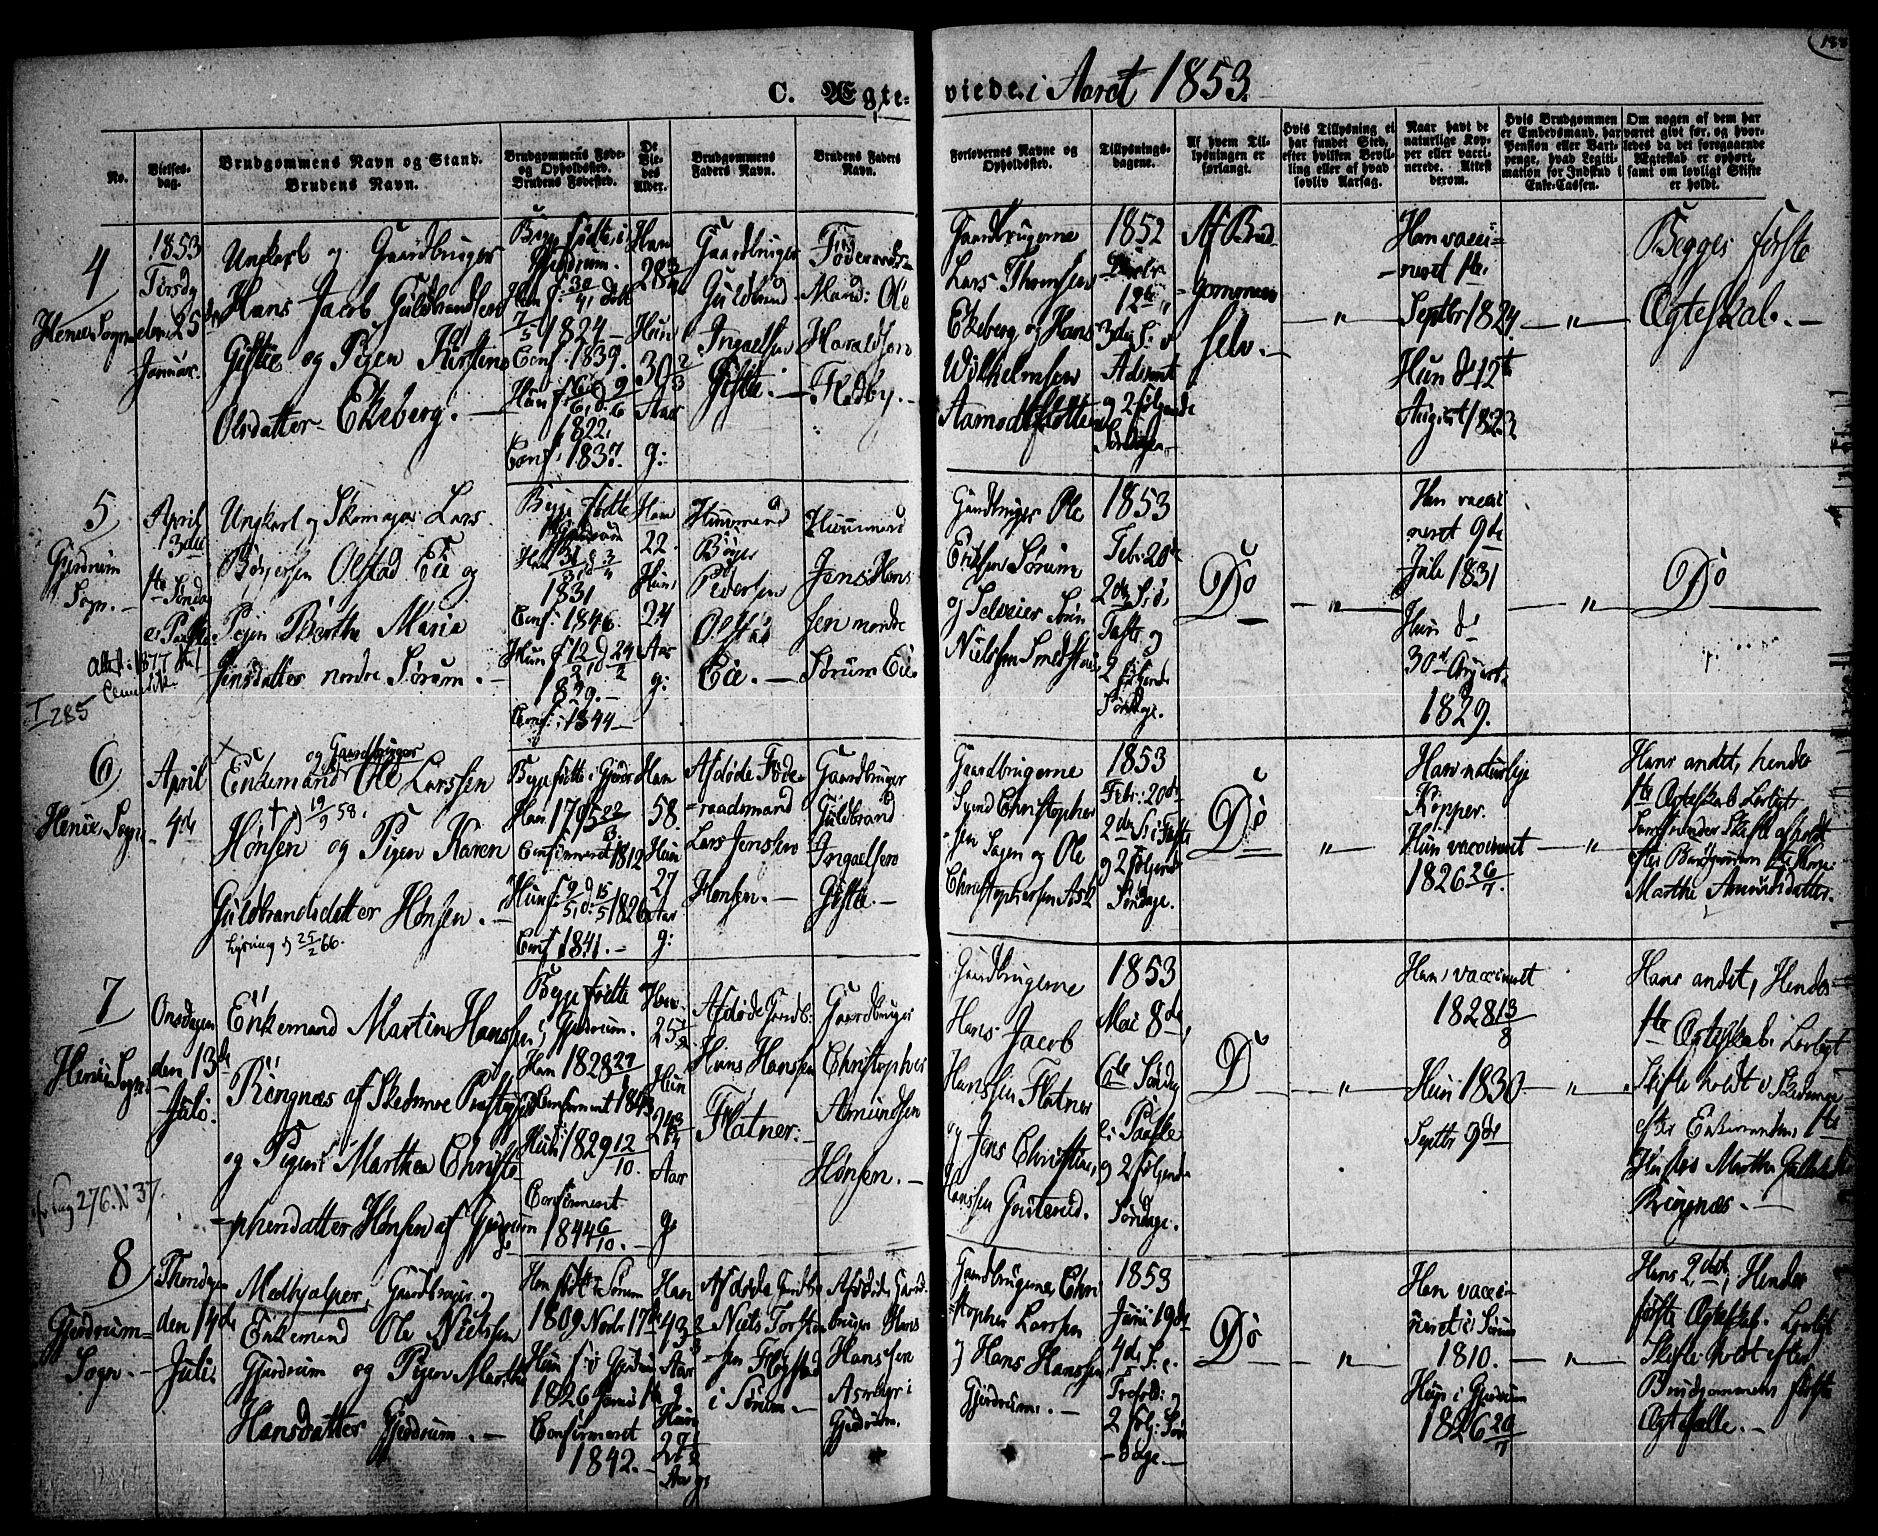 188
C. Ægte-
viede. i Aaret 1853.
No.
Vielses-
dag.
Brudgommens Navn og Stand.
Brudens Navn.
Brudgommens Føde-
og Opholdssted.
Brudens Fødested.
De
Vie-
des
Alder.
Brudgommens
Faders Navn.
Brudens Faders
Navn.
Forlovernes Navne og
Opholdssted.
Tillysnings-
dagene.
Af hvem Til-
lysningen er
forlangt.
Hvis Tillysning ei
har fundet Sted,
efter hvilken Bevil-
ling eller af hvad
lovlig Aarsag.
Naar havt de
naturlige Kop-
per eller vacci-
nerede. Attest
derom.
Hvis Brudgommen
er Embedsmand, har
Pension eller Vart-
penge, hvad Legiti-
mation for Indskud i
Enke-Cassen.
Om nogen af dem har
været gift før, og hvor-
ledes da det foregaaende
Ægteskab er ophørt,
samt om lovligt Skifte
er holdt.
4
Henie Sogn
1853
Tirsdg
den 25de
Januar.
Ungkarl og Gaardbruger
Hans Jacob Guldbrandsen
Gistie og Pigen Kirstine
Olsdatter Ekeberg. —
Begge fødte i
Gjerdrum.
Han f: 30/4, døbt
7/5 1824 —
Conf. 1839.
Hun f: 6/6, d. 9/6
1822.
Conf: 1837.
Han
28 3/4
Hun
30 2/3
Aar
g:
Gaardbruger
Guldbrand
Ingaelsen
Gistie. —
Føderaads-
Mand: Ole
Haraldsen
Fladby. —
Gaardbrugerne
Lars Thomsen
Ekeberg og Hans
Wilhelmsen
1852
Decbr
12te
3die S: i
Advent
og 2 følgende
Søndage
Af Brud-
gommen
selv. —
— " —
Han vacci-
neret 1te
Septbr 1824.
Hun d. 12te
August 1823
— " —
Begges første
Ægteskab. —
5
Gjerdrum
Sogn. —
April
3die
1te Søndag
e: Paaske
Attest: 1877
I 285
Ungkarl og Skomager Lars
Børgersen Olstad Eie og
Pigen Berthe Maria
Jensdatter nordre Sørum. —
Begge fødte
i Gjerdrum
Han 31/3, d. 3/4
1831
Conf: 1846.
Hun f. 12/2, d 24/2
1829. —
Conf: 1844 —
Han
22.
Hun
24
Aar
g:
Huusmand
Børger
Pedersen
Olstad
Eie. —
Huusmand
Jens Hans
sen nordre
Sørum Eie.
Gaardbruger Ole
Eriksen Sørum
og Selveier Søren
Nielsen Smedstad
1853
Febr: 20de
2den S. i
Faste og
2 følgende
Søndage.
Do
— " —
Han vacci
neret 9de
Juli 1831
Hun d.
30te August
1829.
— " —
Do
6
Henie Sogn
April
4de
Enkemand og Gaardbruger Ole Larssen
† 19/9 58.
Hønsen og Pigen Karen
Guldbrandsdatter Hønsen. —
Lysning 25/2 66.
Begge fødte i Gjerdr
Han 1795 22/3.
Confirmeret 1812
Hun f: 9/5, d: 15/5 1826
Conf 1841. —
Han
58.
Hun
27
Aar
g:
Afdøde Føde-
raadsmand
Lars Jenssen
Hønsen. —
Gaardbruger
Guldbrand
Ingaelsen
Gistie. —
Gaardbrugerne
Svend Christopher-
sen Sagen og Ole
Christophersen Ask
1853
Febr: 20de
2den S. i Faste
og 2 følgende
Søndage.
Do
— " —
Han naturlige
Kopper.
Hun vaccineret
1826 26/7.
— " —
Hans andet, hendes
1te Ægteskab. Lovligt
Skifte afholdt
efter Brudgommens 1te Kone
Marthe Amundsdatter.
7
Henie Sogn
Onsdagen
den 13de
Juli.
Pag 276. N 37.
Enkemand Martin Hanssen
Ringnæs af Skedsmoe Præstegjeld
og Pigen Marthea Christo-
phersdatter Hønsen af Gjerdrum
Begge fødte
i Gjerdrum.
Han 1828 22/6
Confirmeret 1843
Hun: 1829 12/10.
Confirmeret
1844 6/10. —
Han
25
Hun
23 3/4
Aar
g:
Afdøde Gaardb:
Hans Hanssen
Flatner:
Gaardbruger
Christopher
Amundsen
Hønsen. —
Gaardbrugerne
Hans Jacob
Hanssen Flatner
og Jens Christian
Hanssen
1853
Mai 8de,
6te Søndag
e: Paaske
og 2 følgende
Søndage.
Do
— " —
Han vaccineret
1828 13/8
Hun 1830
Septbr 9de
— " —
Hans andet, Hendes
1te Ægteskab. Lovligt
Skifte holdt i Skedsmoe
efter Enkemandens 1te
Hustru Marthe
Ringnæs. —
8
Gjerdrum-
Sogn. —
Thorsdagen
den 14de
Juli.
Medhjælper, Gaardbruger og
Enkemand Ole Nielsen
Gjerdrum og Pigen Marthe
Hansdatter Gjerdrum. —
Han født i Sørum
1809 Novbr 17de
Hun f. i Gjerdrum
1826
Confirmeret
1842. —
Han
43 2/3
Aar
g
Hun
27 1/2
Aar g:
Afdøde Gaardbr
Niels Torsten-
sen Fløgstad
i Sørum. —
Afdøde Gaard-
bruger Hans
Hanssen
Asmyr i
Gjerdrum.
Gaardbrugerne Chri
stopher Larssen
og Hans Hanssen
Gjerdrum. —
1853
Juni 19de
4de S: e:
Trefold: og
2 følg: Søn
-dage. —
Do
— " —
Han vacci-
neret i Sørum
1810.
Hun i Gjerdrum
1826 20/7
— " —
Hans 2det, Hendes
første Ægteskab. Lovligt
Skifte holdt efter
Brudgommens første
Ægtefælle. —